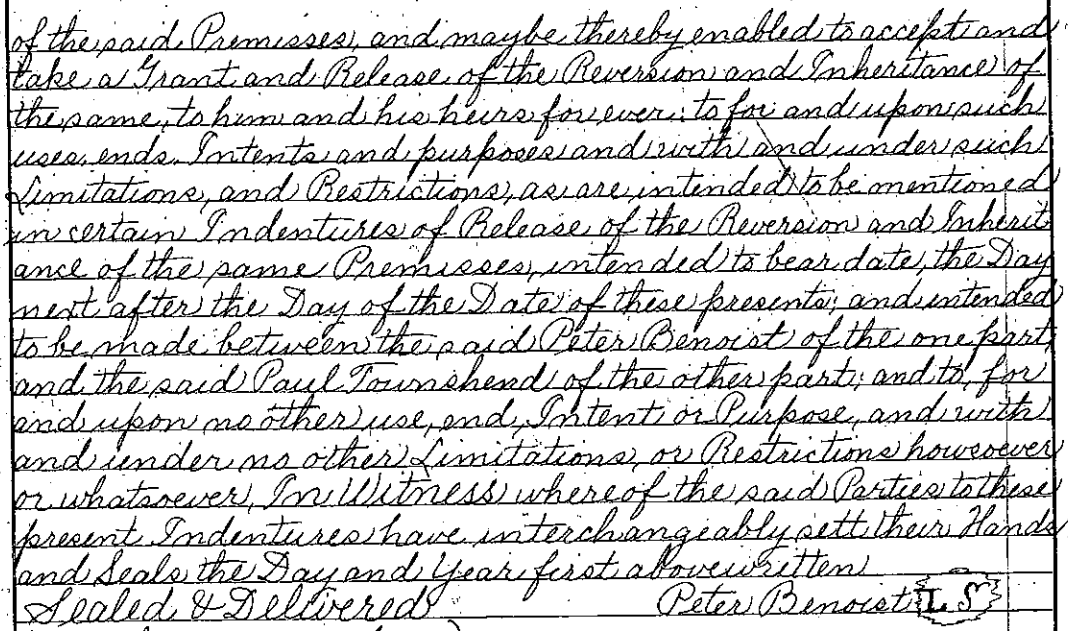 of the said Premisses, and maybe thereby enabled to accept and
take a Grant and Release of the Reversion and Inheritance of
the same, to him and his heirs for ever: to for and upon such
uses, ends, Intents and purposes and with and under such
Limitations, and Restrictions, as are intended to be mentioned
in certain Indentures of Release of the Reversion and Inherit-
ance of the same Premisses, intended to bear date, the Day
next after the Day of the Date of these presents; and intended
to be made between the said Peter Benoist of the one part,
and the said Paul Townshend of the other part; and to, for
and upon no other use, end, Intent or Purpose, and with
and under no other Limitations, or Restrictions howsoever
or whatsoever, In Witness whereof the said Parties to these
present Indentures have interchangeably sett their Hands
and Seals the Day and Year first above written
Sealed & Delivered Peter Benoist L S